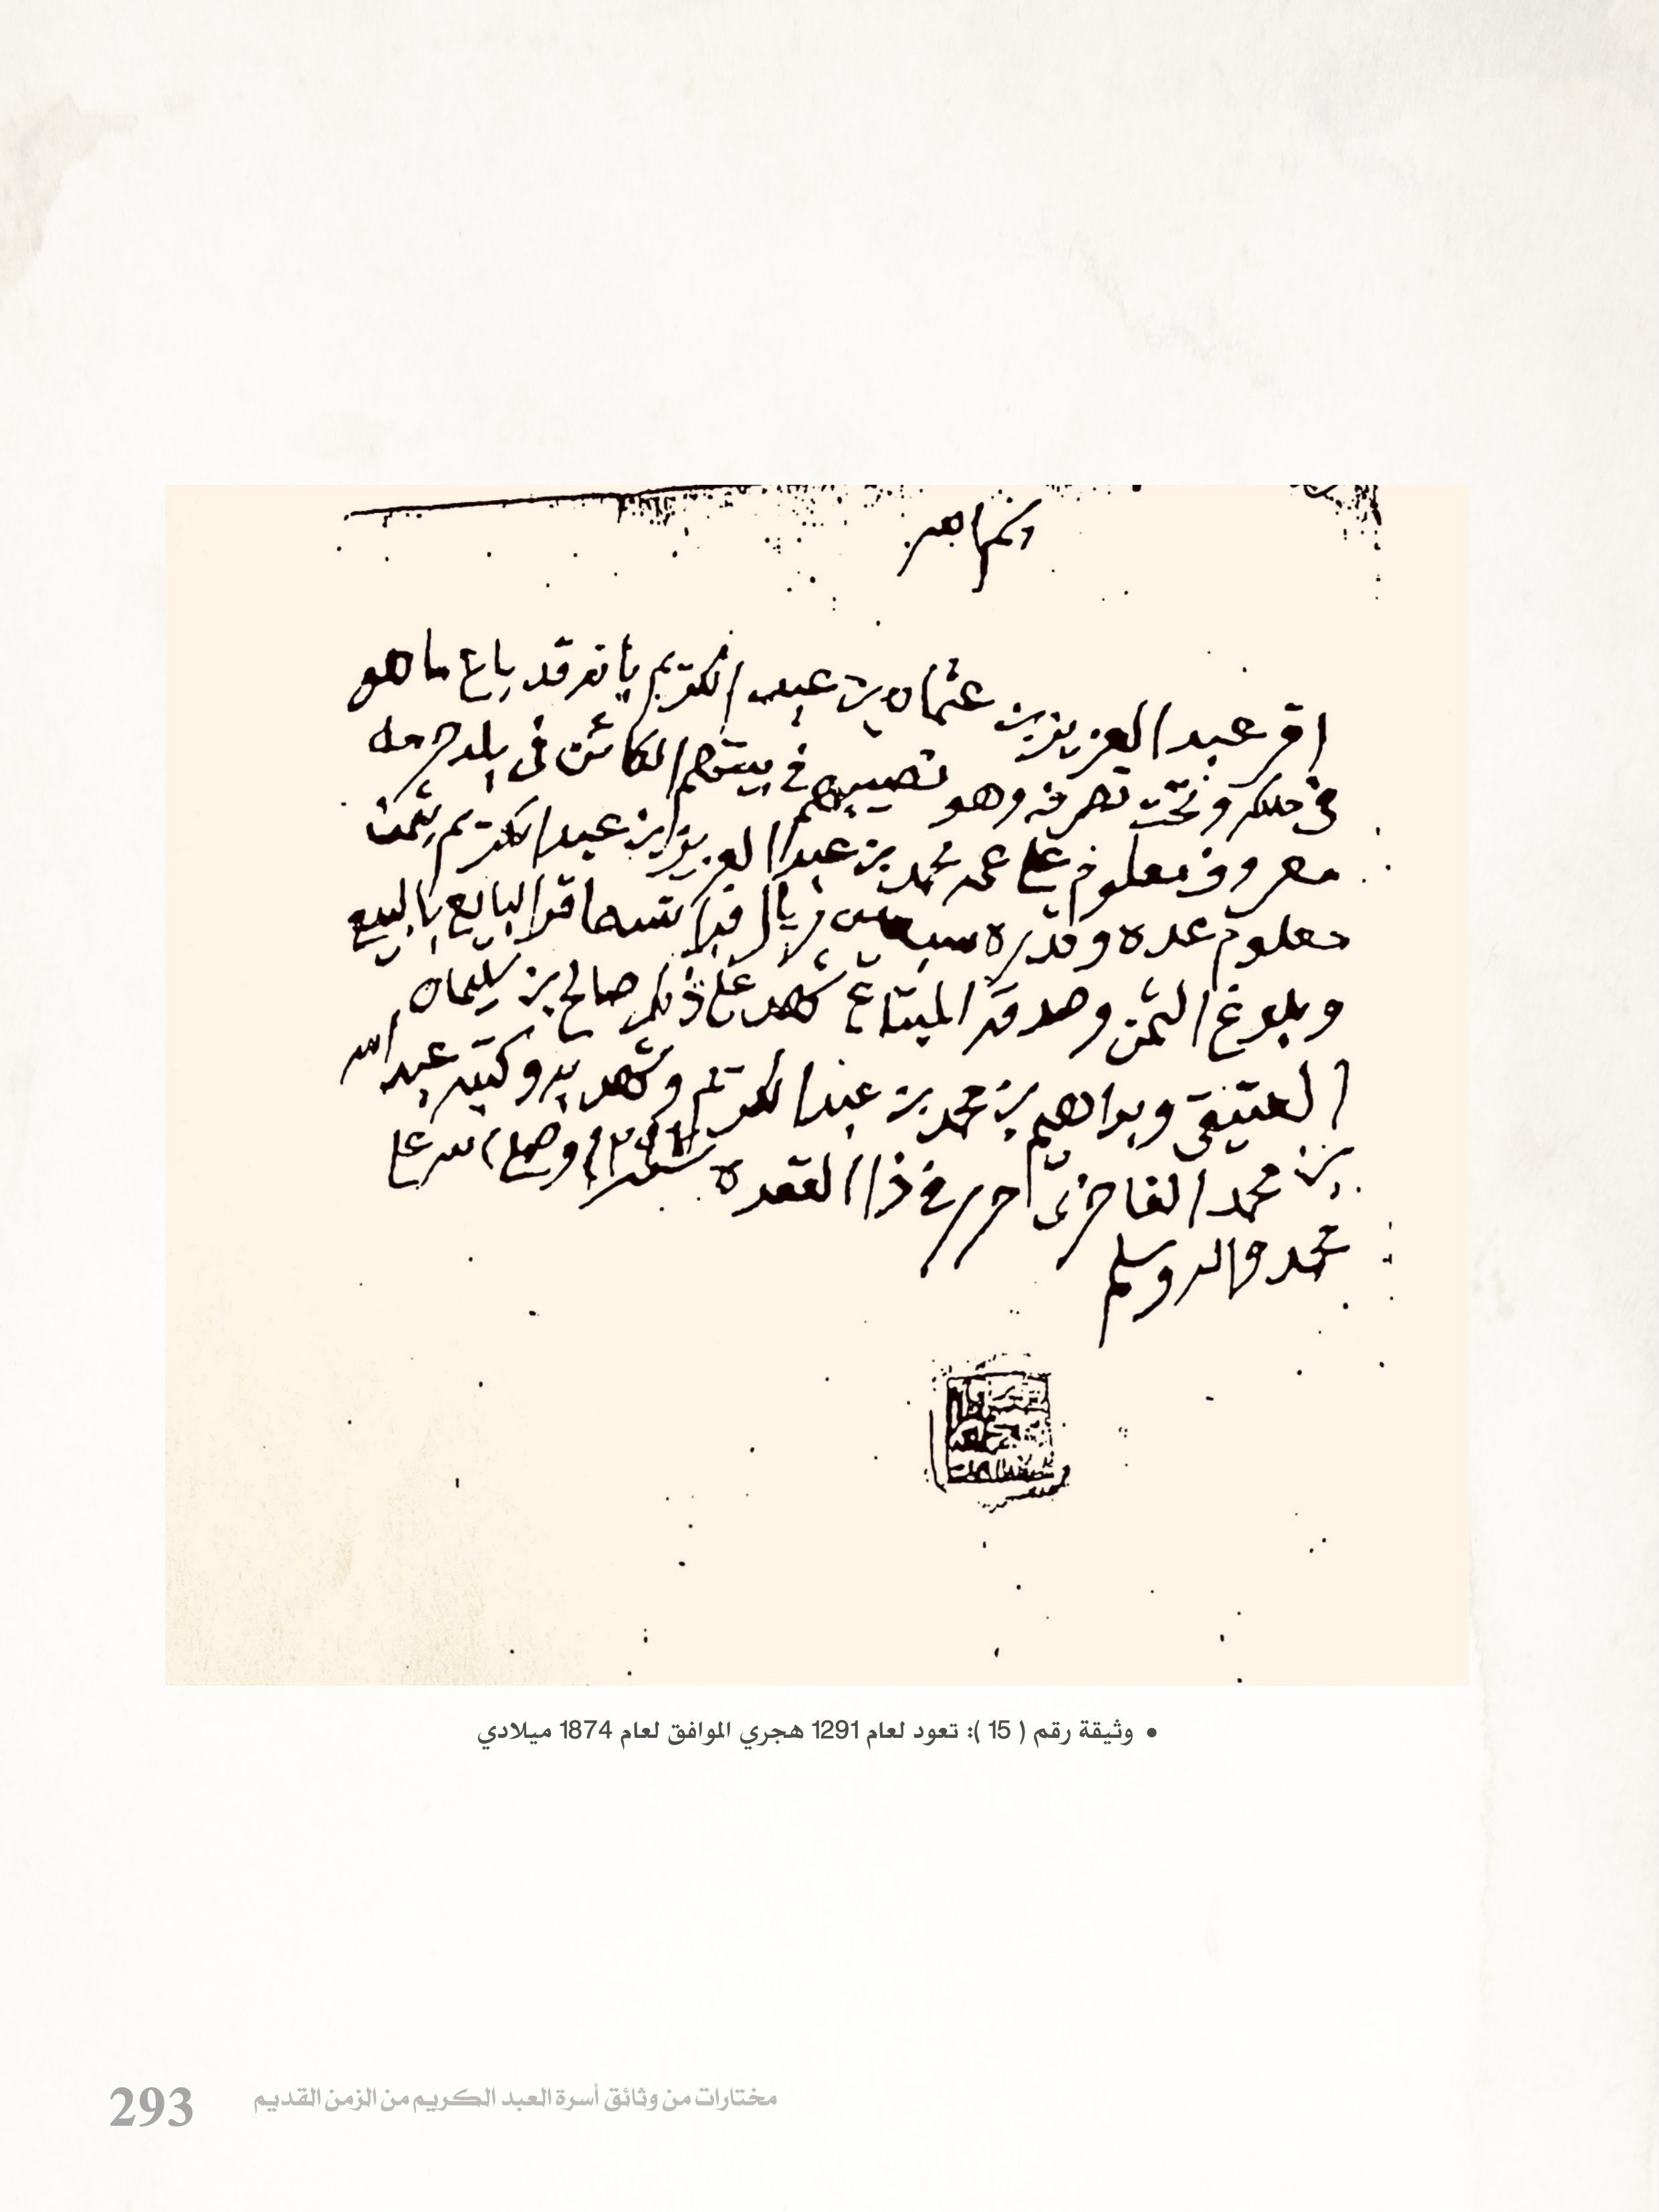 اقر عبد العزيز بن عثمان بن عبد الكريم بأنه قد باع ما هو
في ملكه وتحت تصرفه وهو نصيبهم في بيتهم الكائن في بلد حرمه
معروف معلوم على عمه محمد بن عبد العزيز ابن عبد الكريم بثمن
معلوم عده وقدره سبعين ريال فرانسه اقر البايع بالبيع
وبلوغ الثمن وصدقه المبتاع شهد على ذلك صالح بن سليمان
العتيقي وبراهيم بن محمد بن عبد الكريم وشهد به وكتبه عبد الله
بن محمد الفاخري حرر في ذا القعده سنة ١٢٩١ وصلى الله على
محمد واله وسلم
• وثيقة رقم ( 15 ): تعود لعام 1291 هجري الموافق لعام 1874 ميلادي
مختارات من وثائق أسرة العبد الكريم من الزمن القديم 293